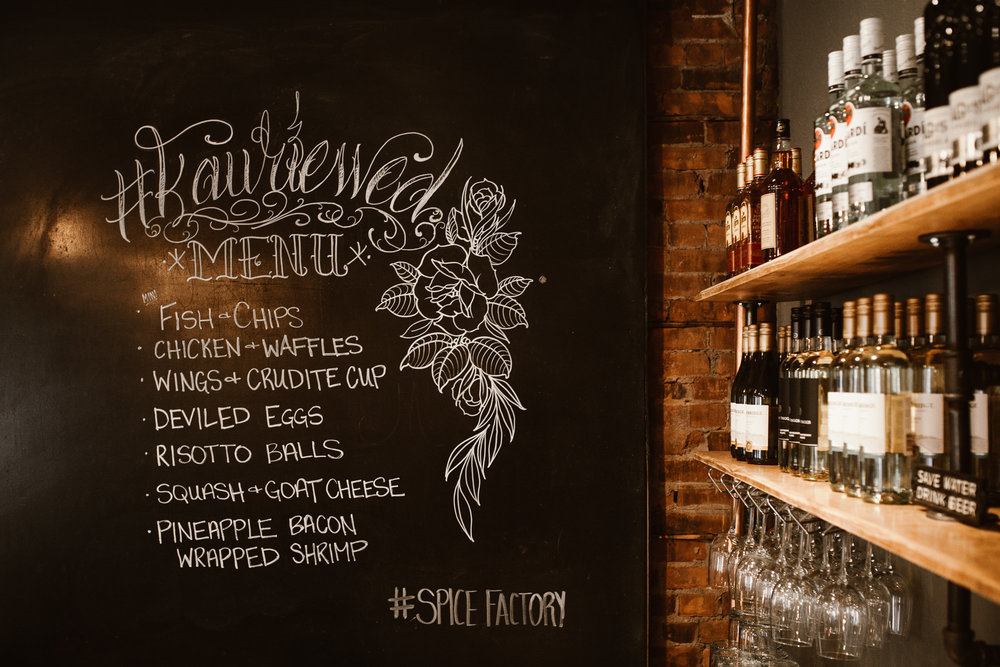 #Kawriewed
*MENU*
MINI
· FISH & CHIPS
· CHICKEN & WAFFLES
· WINGS & CRUDITE CUP
· DEVILED EGGS
· RISOTTO BALLS
· SQUASH & GOAT CHEESE
· PINEAPPLE BACON
WRAPPED SHRIMP
#SPICE FACTORY
SAVE WATER
DRINK BEER